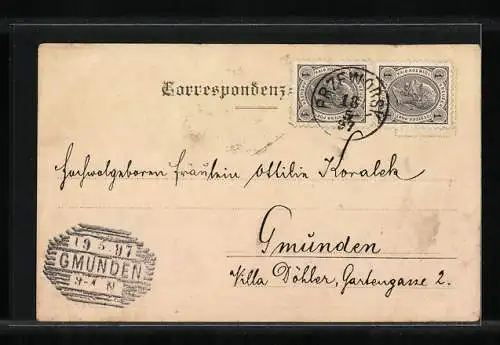 Correspondenz-
PRZEWORSK
18
5
97
Hochwolgeboren Fräulein Ottilie Koralek
Gmünden
Villa Döhler, Gartengasse 2.
19.5.97
GMUNDEN
9-4 N